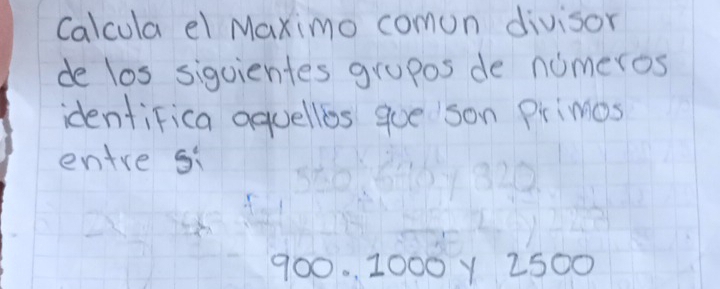 Calcula el Maximo comun divisor
de los siguientes grupos de números
identifica aquellos que son Primos
entre sí
900. 1000 y 2500